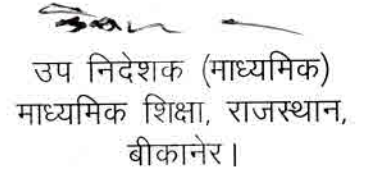 उप निदेशक (माध्यमिक)
माध्यमिक शिक्षा, राजस्थान,
बीकानेर।